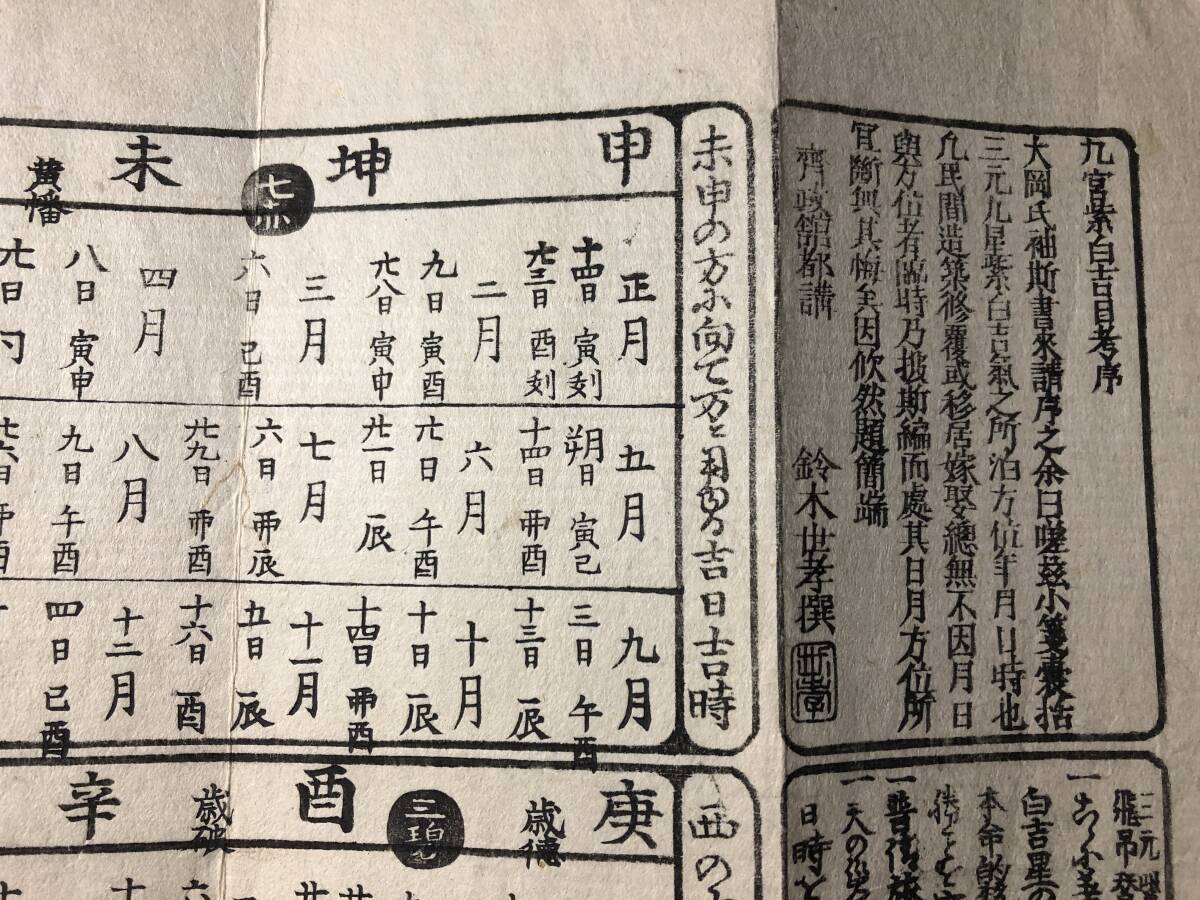 九宮紫白吉日考序
大岡氏袖斯書來請序之余曰嗟茲小箋嚢括
三元九星紫白吉氣之所泊方位年月日時也
凡民間造築修覆或移居嫁娶總無不因月日
與方位者臨時乃披斯編而處其日月方位所
宜斷無其悔矣因欣然題簡端
齊政館都講 鈴木世孝撰
未申の方に向て万に用る吉日吉時
申 坤 七赤 未 黄幡
正月
十四日 寅刻
廿三日 酉刻
二月
九日 寅酉
廿八日 寅申
三月
六日 巳酉
四月
八日 寅申
五月
朔日 寅巳
十四日 卯酉
六月
廿日 午酉
廿一日 辰
七月
六日 卯辰
廿九日 卯酉
八月
九日 午酉
九月
三日 午酉
十三日 辰
十月
十日 辰
十四日 卯酉
十一月
五日 辰
十六日 酉
十二月
四日 巳酉
西の
庚 歳徳 三碧 酉 歳破 辛
三元
白吉星の
本命的殺
日時を